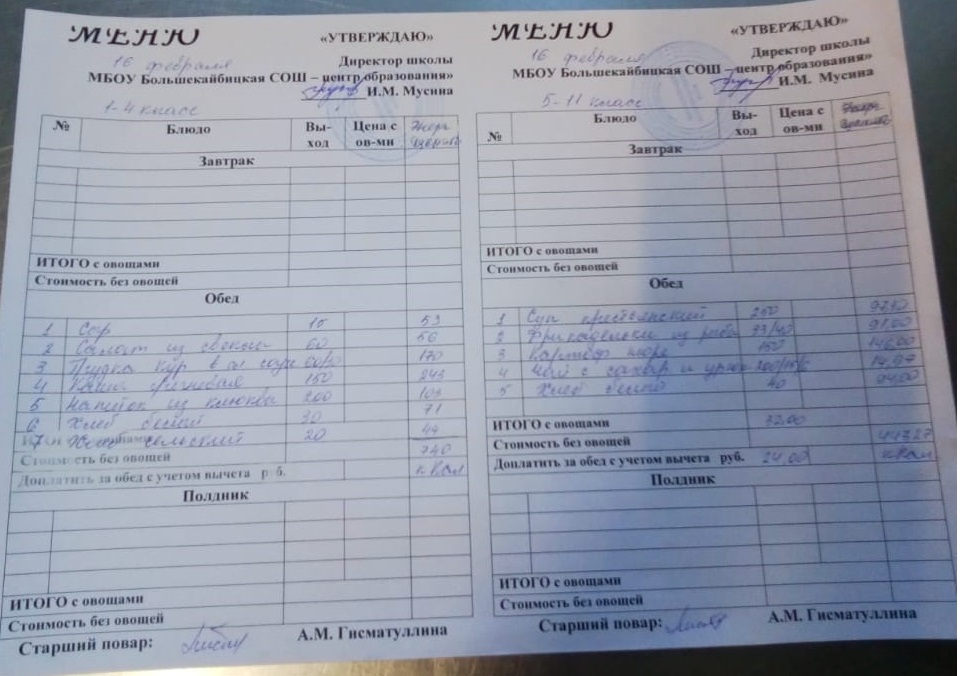 МЕНЮ
«УТВЕРЖДАЮ»
16 февраля
Директор школы
МБОУ Большекайбицкая СОШ – центр образования»
И.М. Мусина
1-4 класс
№ Блюдо Вы-ход Цена с ов-ми
Завтрак
ИТОГО с овощами
Стоимость без овощей
Обед
1 Сыр 15 53
2 Салат из свеклы 60 56
3 170
4 Каша 150 243
5 Напиток из клюквы 200 103
6 Хлеб белый 30 71
7 Хлеб сельский 20 44
ИТОГО с овощами
Стоимость без овощей 740
Доплатить за обед с учетом вычета р б. кКал
Полдник
ИТОГО с овощами
Стоимость без овощей
Старший повар: А.М. Гисматуллина
МЕНЮ
«УТВЕРЖДАЮ»
16 февраля
Директор школы
МБОУ Большекайбицкая СОШ – центр образования»
И.М. Мусина
5-11 класс
№ Блюдо Вы-ход Цена с ов-ми
Завтрак
ИТОГО с овощами
Стоимость без овощей
Обед
1 Суп крестьянский 250
2 Фрикадельки из рыбы
3 Картоф пюре 150
4 Чай с сахар и
5 Хлеб белый 40
ИТОГО с овощами 32.00
Стоимость без овощей
Доплатить за обед с учетом вычета руб. 24,00 кКал
Полдник
ИТОГО с овощами
Стоимость без овощей
Старший повар: А.М. Гисматуллина